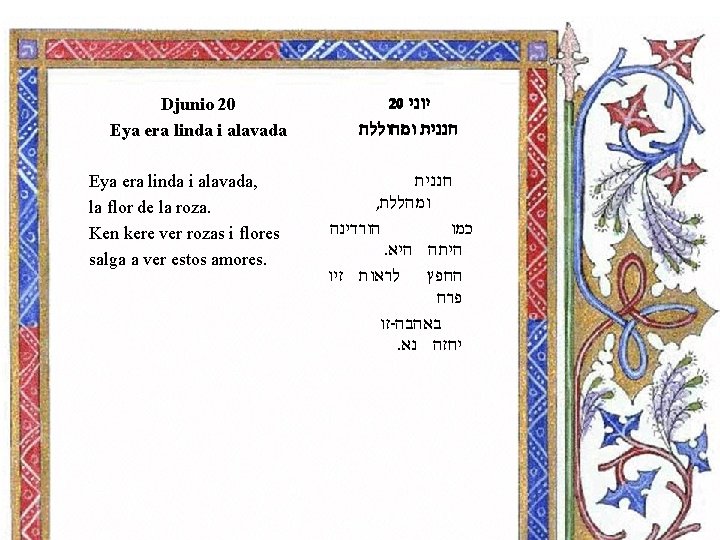 Djunio 20
Eya era linda i alavada
Eya era linda i alavada,
la flor de la roza.
Ken kere ver rozas i flores
salga a ver estos amores.
יוני 20
חננית ומחוללת
חננית
ומהללת,
כמו הורדינה
היתה היא.
החפץ לראות זיו
פרח
באהבה-זו
יחזה נא.